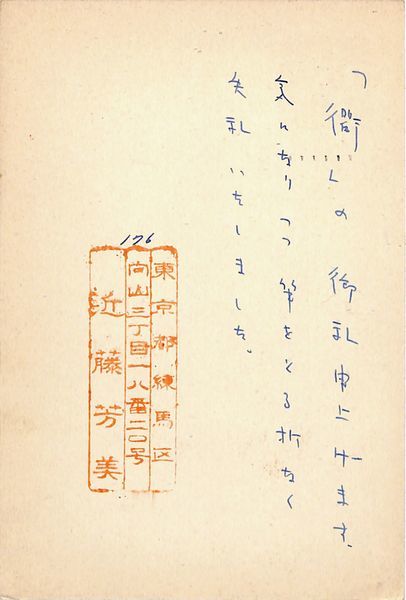 「衢」の御礼申上げます。
気になりつつ筆をとる折なく
失礼いたしました。
176
東京都練馬区
向山三丁目一八番二〇号
近藤芳美